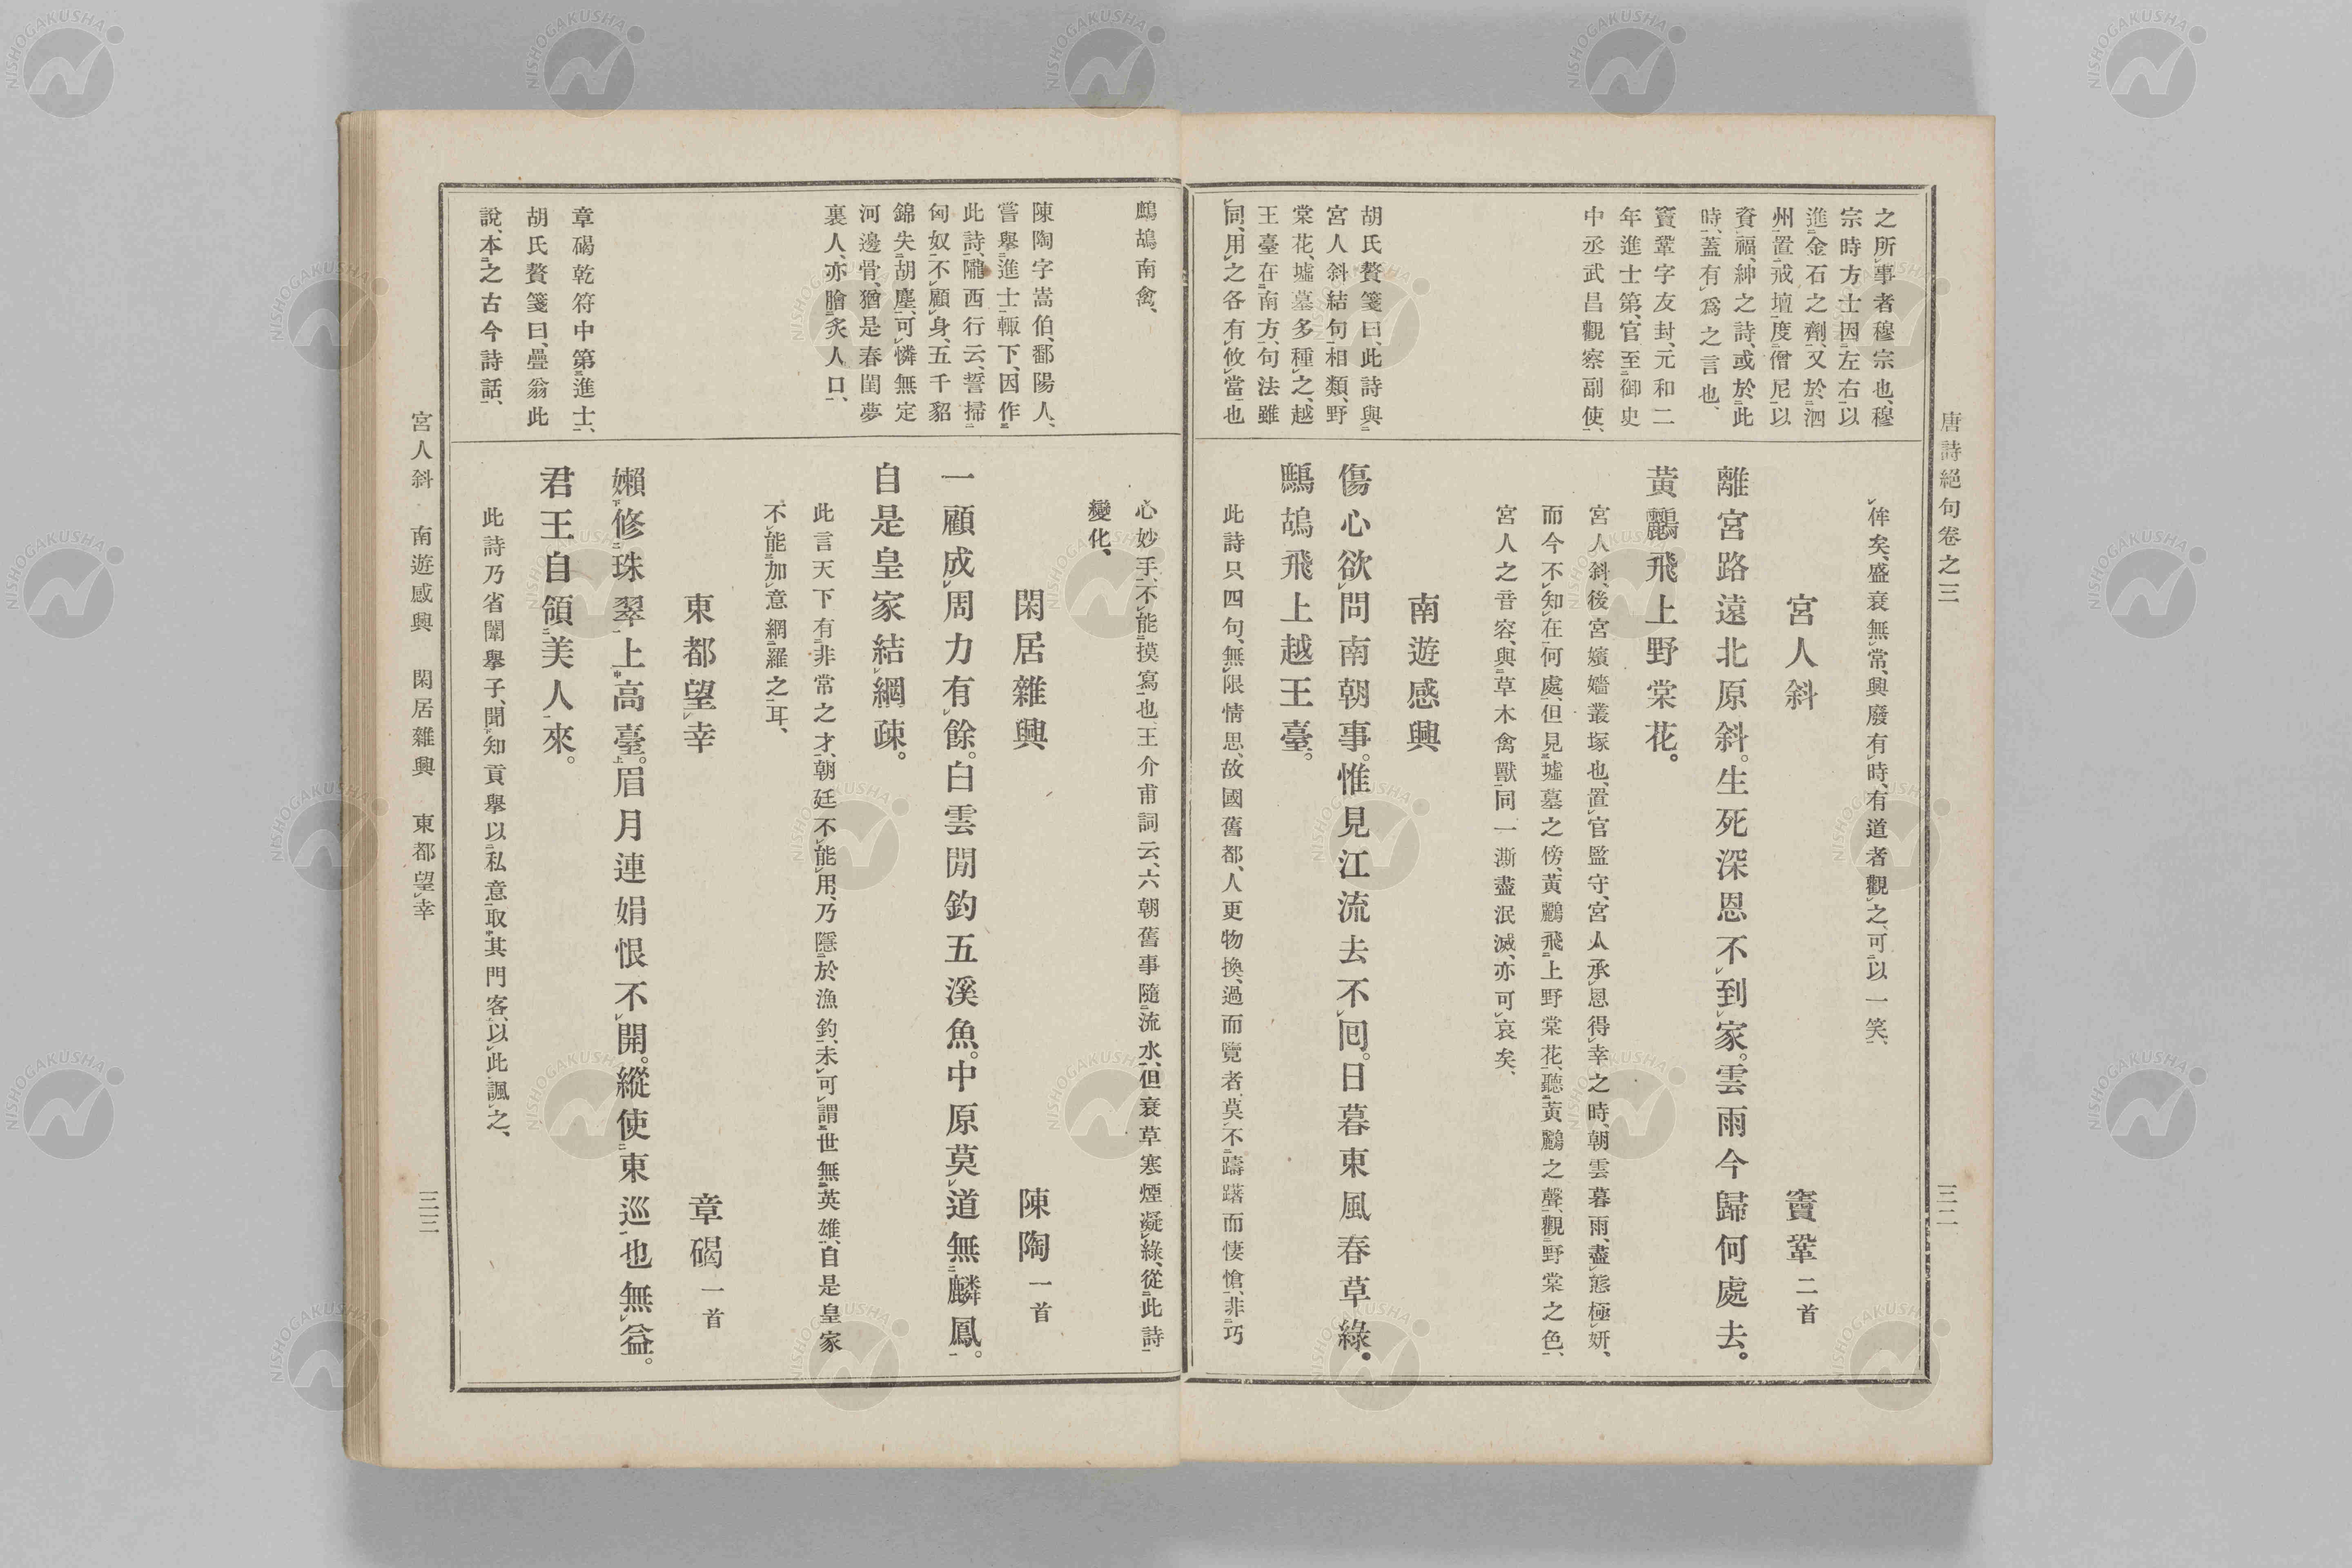 唐詩絕句卷之三
三二
之所事者穆宗也、穆
宗時方士因左右以
進金石之劑、又於泗
州置戒壇度僧尼以
資福、紳之詩、或於此
時、蓋有爲之言也、
竇鞏字友封、元和二
年進士第、官至御史
中丞武昌觀察副使、
胡氏贅箋曰、此詩與
宮人斜結句相類、野
棠花、墟墓多種之、越
王臺在南方、句法雖
同、用之各有攸當也
侔矣、盛衰無常、興廢有時、有道者觀之、可以一笑、
宮人斜 竇鞏 二首
離宮路遠北原斜。生死深恩不到家。雲雨今歸何處去。
黃鸝飛上野棠花。
宮人斜、後宮嬪嬙叢塚也、置官監守、宮人承恩得幸之時、朝雲暮雨、盡態極妍、
而今不知在何處、但見墟墓之傍、黃鸝飛上野棠花、聽黃鸝之聲、觀野棠之色、
宮人之音容、與草木禽獸同一澌盡泯滅、亦可哀矣、
南遊感興
傷心欲問南朝事。惟見江流去不回。日暮東風春草綠。
鷓鴣飛上越王臺。
此詩只四句、無限情思、故國舊都、人更物換、過而覽者、莫不躊躇而悽愴、非巧
鷓鴣南禽、
陳陶字嵩伯、鄱陽人、
嘗擧進士輙下、因作
此詩、隴西行云、誓掃
匈奴不顧身、五千貂
錦失胡塵、可憐無定
河邊骨、猶是春閨夢
裏人、亦膾炙人口、
章碣乾符中第進士、
胡氏贅箋曰、疊翁此
說、本之古今詩話、
心妙手、不能摸寫也、王介甫詞云、六朝舊事隨流水、但衰草寒煙凝綠、從此詩
變化、
閑居雜興 陳陶 一首
一顧成周力有餘。白雲閒釣五溪魚。中原莫道無麟鳳。
自是皇家結網疎。
此言天下有非常之才、朝廷不能用、乃隱於漁釣、未可謂世無英雄、自是皇家
不能加意網羅之耳、
東都望幸 章碣 一首
嬾修珠翠上高臺。眉月連娟恨不開。縱使東巡也無益。
君王自領美人來。
此詩乃省闈擧子、聞知貢擧以私意取其門客、以此諷之、
宮人斜 南遊感興 閑居雜興 東都望幸
三三